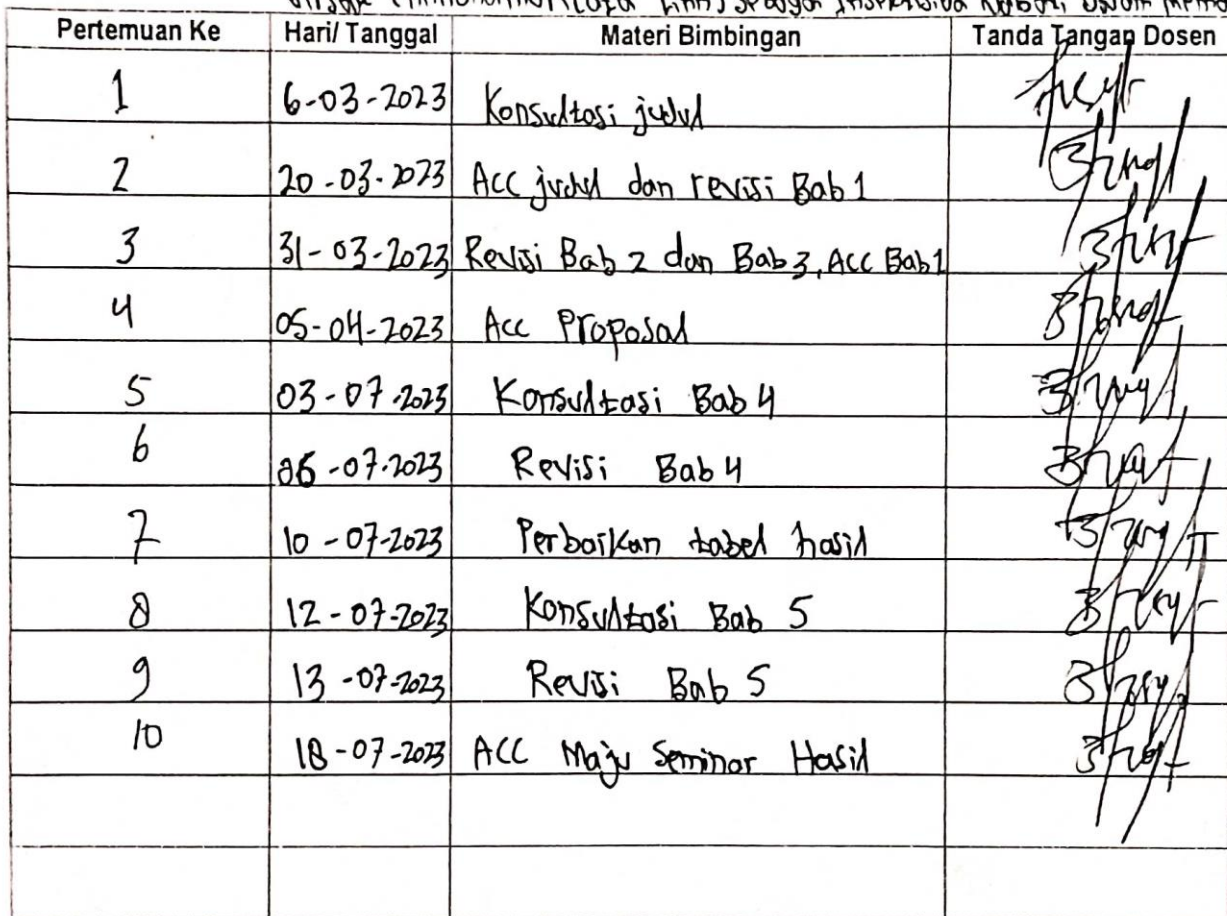 sebagai Insektisida Nabati Dalam
Pertemuan Ke Hari/ Tanggal Materi Bimbingan Tanda Tangan Dosen
1 6-03-2023 Konsultasi judul
2 20-03-2023 Acc judul dan revisi Bab 1
3 31-03-2023 Revisi Bab 2 dan Bab 3, Acc Bab 1
4 05-04-2023 Acc Proposal
5 03-07-2023 Konsultasi Bab 4
6 06-07-2023 Revisi Bab 4
7 10-07-2023 Perbaikan tabel hasil
8 12-07-2023 Konsultasi Bab 5
9 13-07-2023 Revisi Bab 5
10 18-07-2023 ACC Maju Seminar Hasil